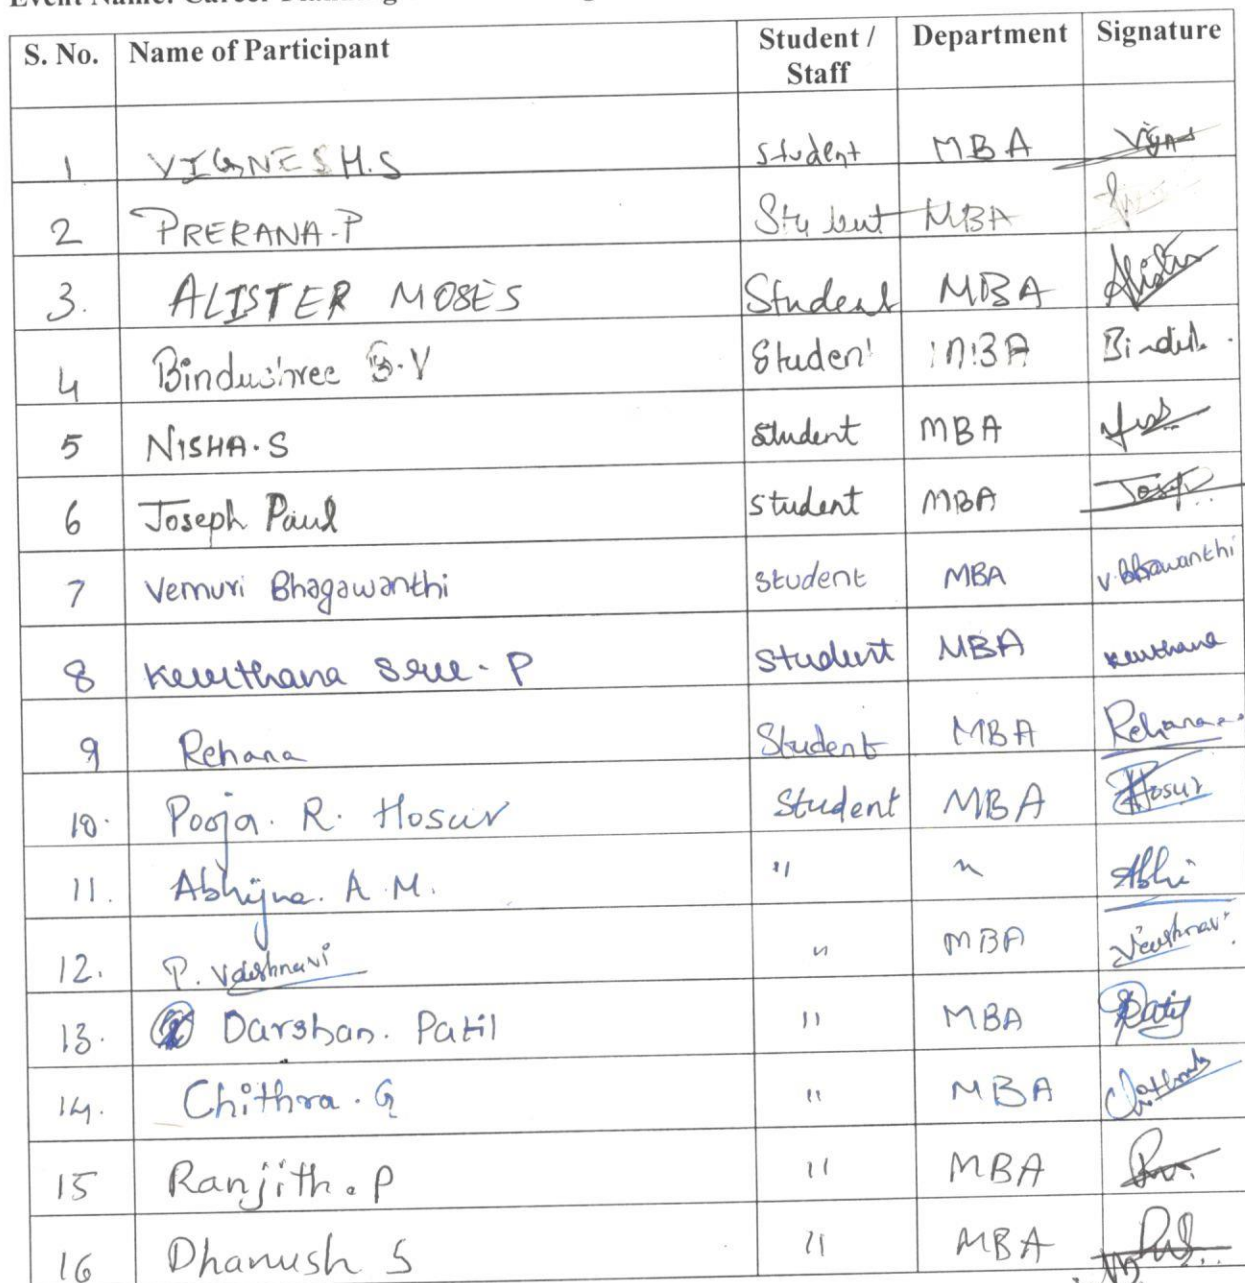 S. No. Name of Participant Student / Staff Department Signature
1 VIGNESH.S student MBA
2 PRERANA.P Student MBA
3. ALISTER MOSES Student MBA
4 Bindushree B.V Student MBA
5 NISHA.S student MBA
6 Joseph Paul student MBA
7 Vemuri Bhagawanthi student MBA
8 Keerthana Sree - P Student MBA Keerthana
9 Rehana Student MBA Rehana
10. Pooja. R. Hosur Student MBA Hosur
11. Abhijna. A. M. " " Abhi
12. P. Vaishnavi " MBA Vaishnavi
13. Darshan. Patil " MBA Patil
14. Chithra. G " MBA
15 Ranjith. P " MBA
16 Dhanush S " MBA